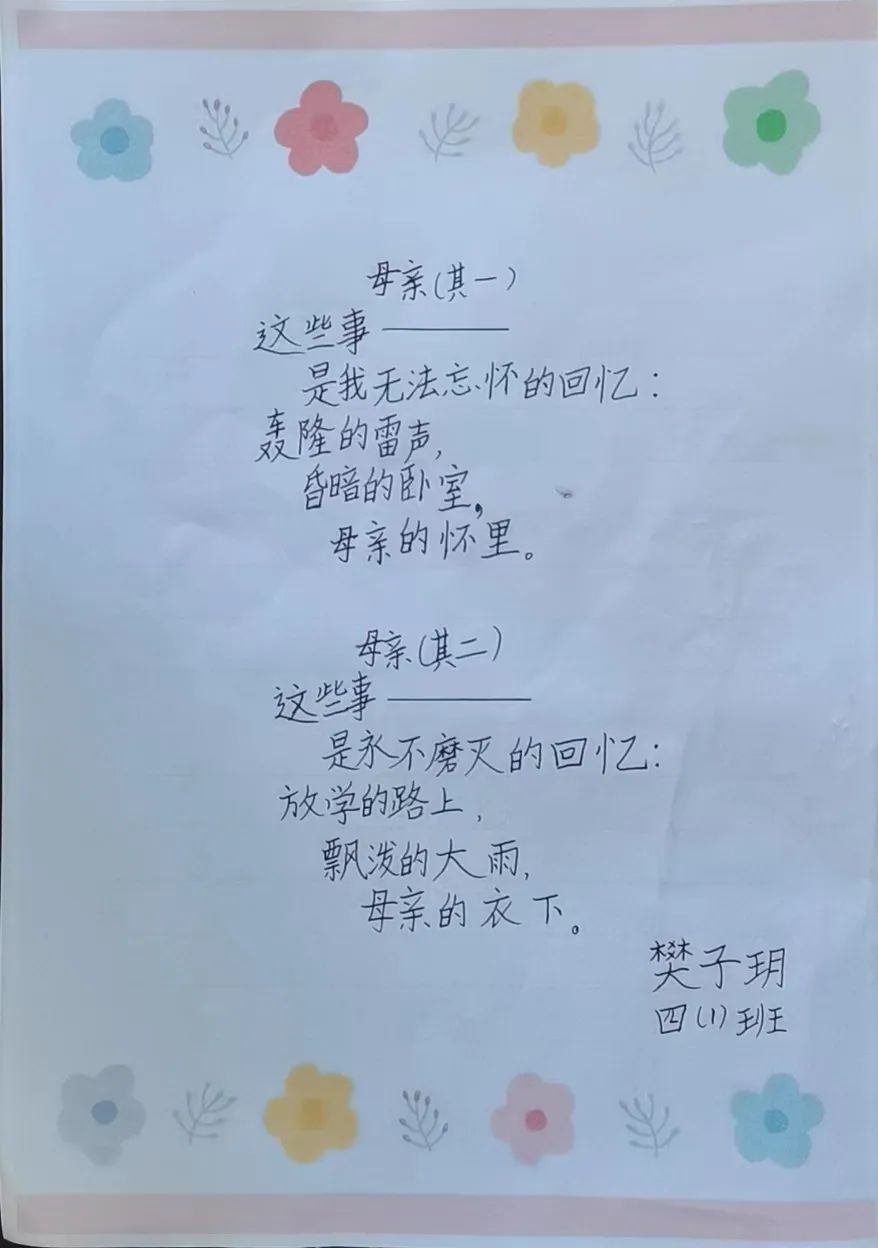 母亲(其一)
这些事——
是我无法忘怀的回忆:
轰隆的雷声,
昏暗的卧室,
母亲的怀里。
母亲(其二)
这些事——
是永不磨灭的回忆:
放学的路上,
飘泼的大雨,
母亲的衣下。
樊子玥
四(1)班